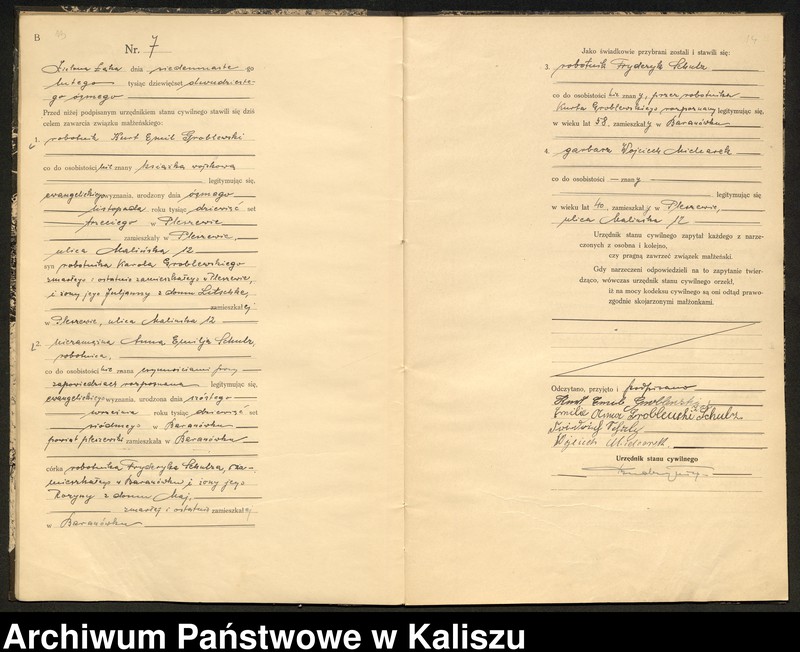 B
Nr. 7
Zielona Łąka dnia siedemnaste go
lutego tysiąc dziewięćset dwudzieste-
go ósmego
Przed niżej podpisanym urzędnikiem stanu cywilnego stawili się dziś
celem zawarcia związku małżeńskiego:
1. robotnik Kurt Emil Groblewski
co do osobistości znany książką wojskową
legitymując się,
ewangelickiego wyznania, urodzony dnia ósmego
listopada roku tysiąc dziewięć set
trzeciego w Pleszewie
zamieszkały w Pleszewie,
ulica Malińska 12
syn robotnika Karola Groblewskiego
zmarłego i ostatnio zamieszkałego w Pleszewie,
i żony jego Juljanny z domu
zamieszkałej
w Pleszewie, ulica Malińska 12
2. niezamężna Anna Emilja Schulz,
robotnica,
co do osobistości znana czynnościami przy
zapowiedziach rozpoznana legitymując się,
ewangelickiego wyznania, urodzona dnia szóstego
września roku tysiąc dziewięć set
siódmego w Baranówku
powiat pleszewski zamieszkała w Baranówku
córka robotnika Fryderyka Schulza, za-
mieszkałego w Baranówku i żony jego
Rozyny z domu Maj,
zmarłej i ostatnio zamieszkałej
w Baranówku
14
Jako świadkowie przybrani zostali i stawili się:
3. robotnik Fryderyk Schulz
co do osobistości znany, przez robotnika
Kurta Groblewskiego rozpoznany legitymując się,
w wieku lat 58, zamieszkały w Baranówku
4. garbarz Wojciech Micharek
co do osobistości — znany
legitymując się
w wieku lat 40, zamieszkały w Pleszewie,
ulica Malińska 12
Urzędnik stanu cywilnego zapytał każdego z narze-
czonych z osobna i kolejno,
czy pragną zawrzeć związek małżeński.
Gdy narzeczeni odpowiedzieli na to zapytanie twier-
dząco, wówczas urzędnik stanu cywilnego orzekł,
iż na mocy kodeksu cywilnego są oni odtąd prawo-
zgodnie skojarzonymi małżonkami.
Odczytano, przyjęto i podpisano
Kurt Emil Groblewski
Emilia Anna Groblewski Schulz
Wojciech
Urzędnik stanu cywilnego
Archiwum Państwowe w Kaliszu